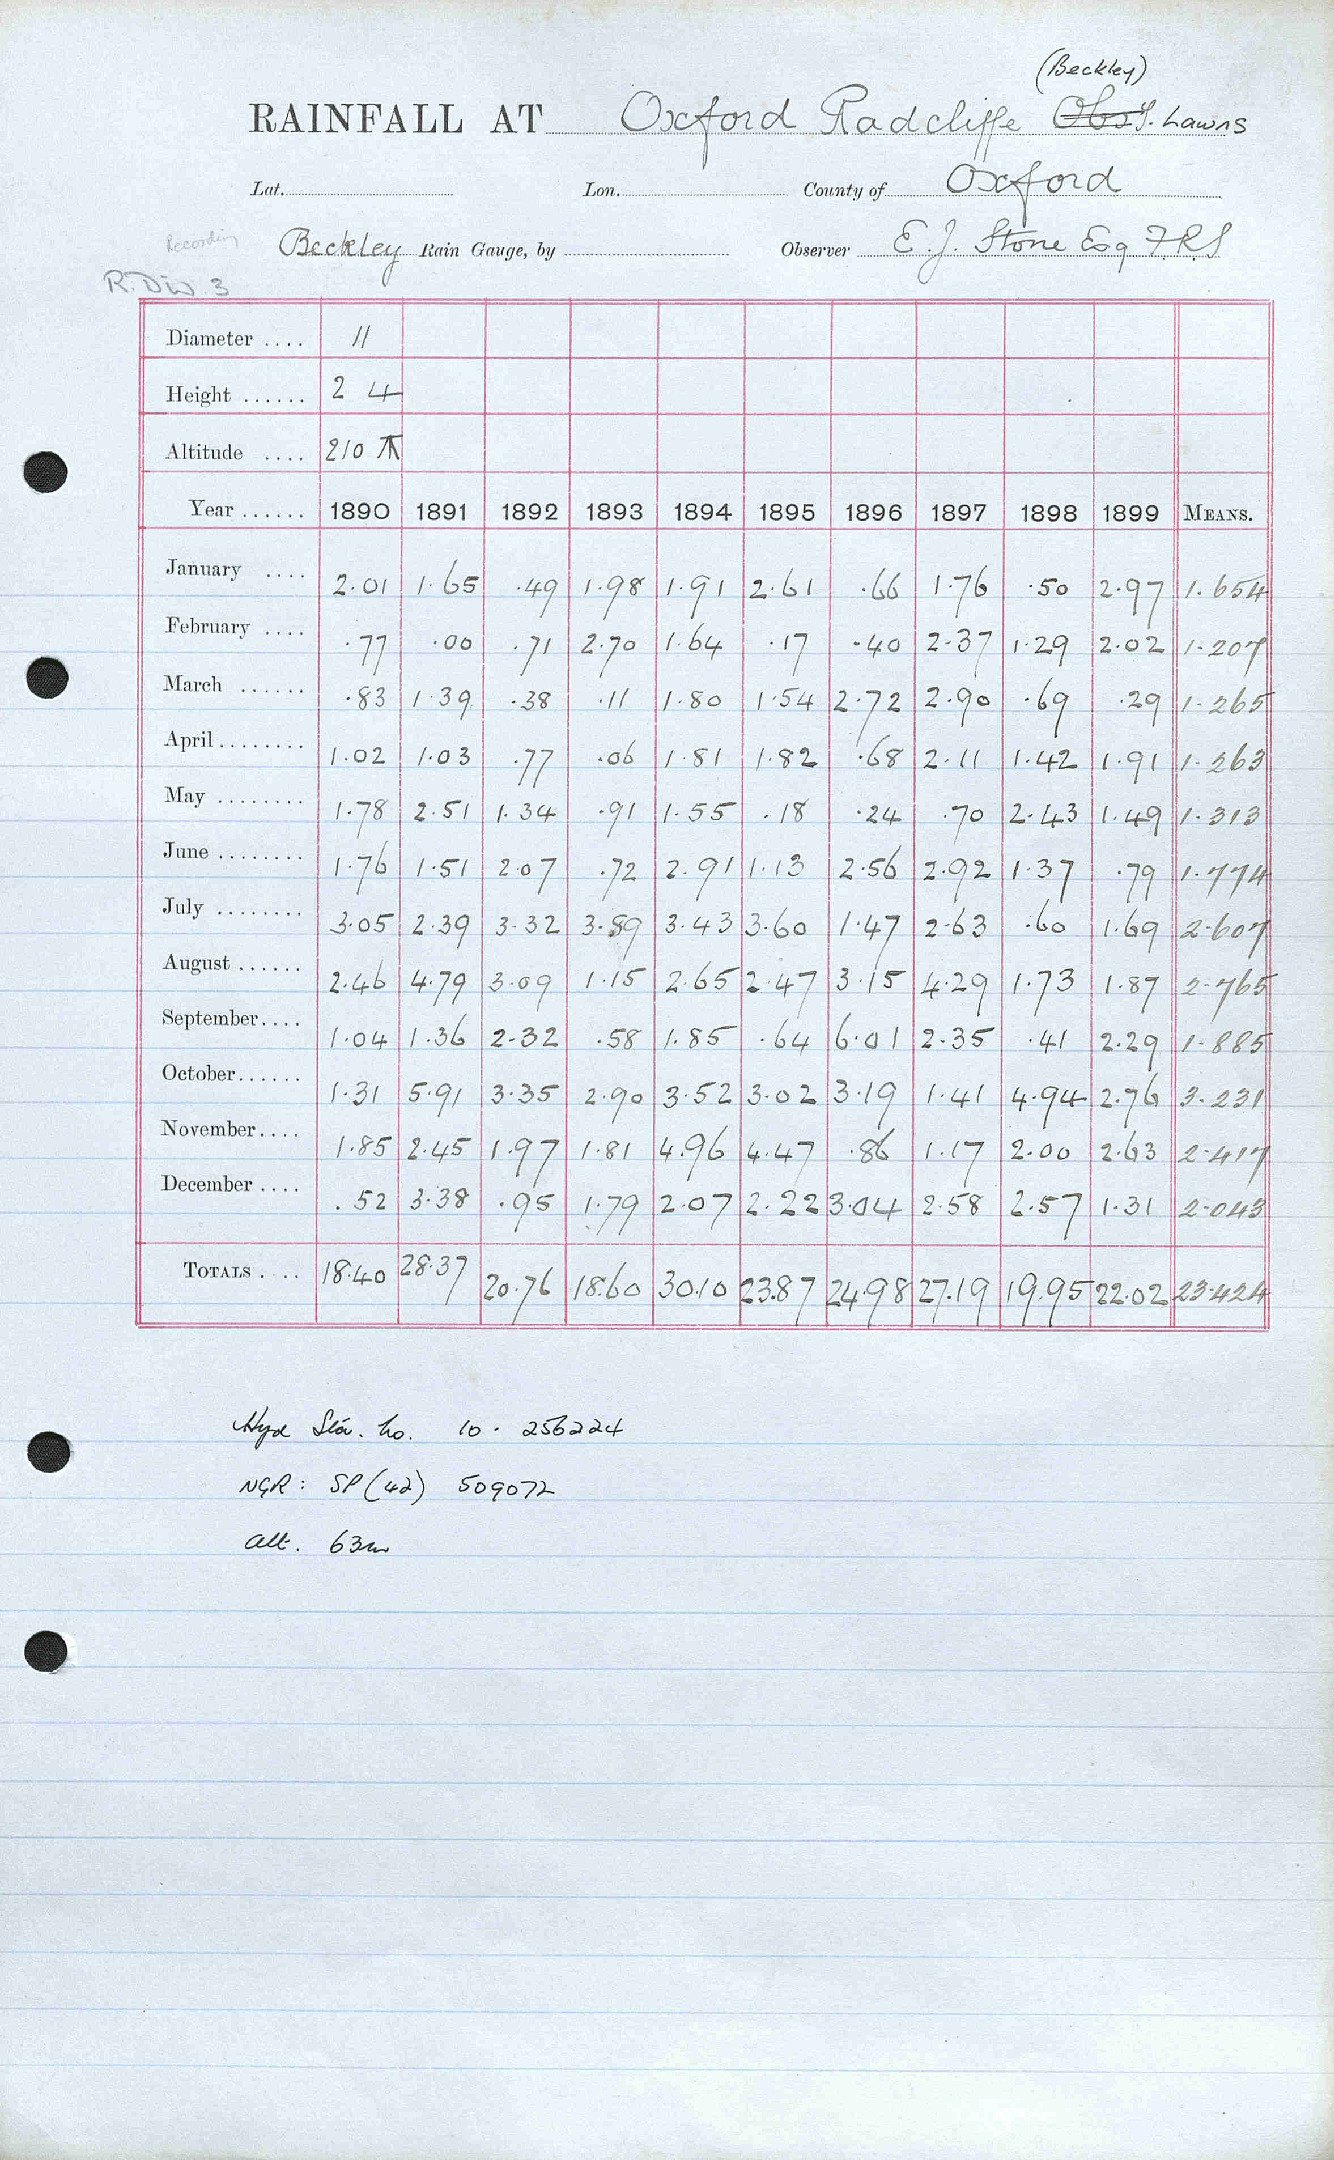 (Beckley)
RAINFALL AT Oxford Radcliffe Obsy. Lawns
Lat. Lon. County of Oxford
Recording Beckley Rain Gauge, by Observer E. J. Stone Esq F.R.S
R. Div 3
Diameter .... 11
Height ...... 2 4
Altitude .... 210 T
Year ...... 1890 1891 1892 1893 1894 1895 1896 1897 1898 1899 MEANS.
January .... 2.01 1.65 .49 1.98 1.91 2.61 .66 1.76 .50 2.97 1.654
February .... .77 .00 .71 2.70 1.64 .17 .40 2.37 1.29 2.02 1.207
March ...... .83 1.39 .38 .11 1.80 1.54 2.72 2.90 .69 .29 1.265
April ........ 1.02 1.03 .77 .06 1.81 1.82 .68 2.11 1.42 1.91 1.263
May ........ 1.78 2.51 1.34 .91 1.55 .18 .24 .70 2.43 1.49 1.313
June ........ 1.76 1.51 2.07 .72 2.91 1.13 2.56 2.92 1.37 .79 1.774
July ........ 3.05 2.39 3.32 3.89 3.43 3.60 1.47 2.63 .60 1.69 2.607
August ...... 2.46 4.79 3.09 1.15 2.65 2.47 3.15 4.29 1.73 1.87 2.765
September .... 1.04 1.36 2.32 .58 1.85 .64 6.01 2.35 .41 2.29 1.885
October ...... 1.31 5.91 3.35 2.90 3.52 3.02 3.19 1.41 4.94 2.76 3.231
November .... 1.85 2.45 1.97 1.81 4.96 4.47 .86 1.17 2.00 2.63 2.417
December .... .52 3.38 .95 1.79 2.07 2.22 3.04 2.58 2.57 1.31 2.043
TOTALS .... 18.40 28.37 20.76 18.60 30.10 23.87 24.98 27.19 19.95 22.02 23.424
Hyd Stn. no. 10. 256224
NGR: SP (42) 509072
alt. 63m